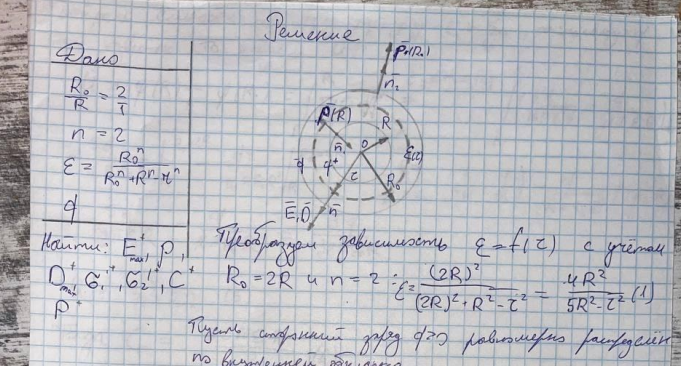 Решение
Дано
R₀/R = 2/1
n = 2
ε = R₀ⁿ/(R₀ⁿ+Rⁿ-rⁿ)
q
Найти: E⁺max, ρ⁺,
D⁺max, σ₁'⁺, σ₂'⁺, C⁺
P⁺
P̄(R₀)
n̄₂
P̄(R)
R
n̄₁
O
q⁺
ε(r)
R₀
n̄
Ē, D̄
Преобразуем зависимость ε = f(r) с учётом
R₀ = 2R и n = 2: ε = (2R)²/((2R)²+R²-r²) = 4R²/(5R²-r²) (1)
Пусть сторонний заряд q>0 равномерно распределён
по внутренней